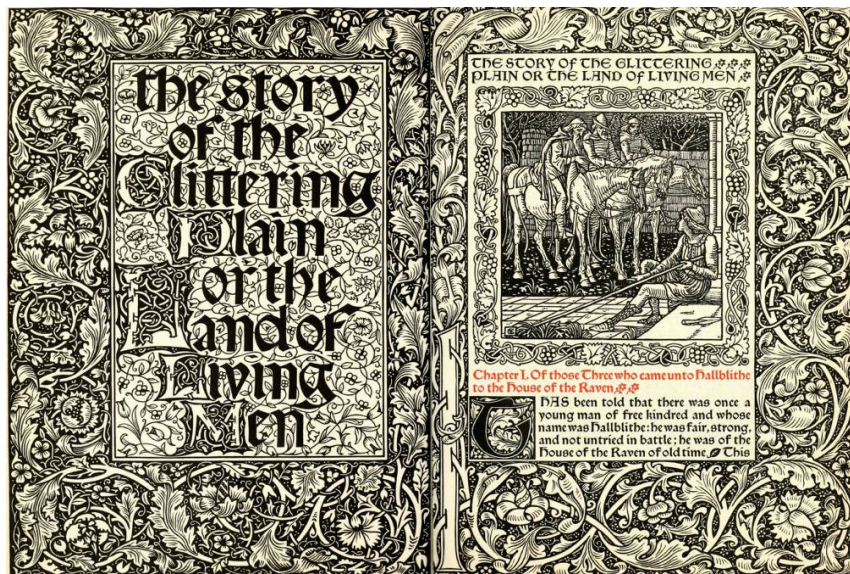 the story
of the
Glittering
Plain
or the
Land of
Living
Men
THE STORY OF THE GLITTERING
PLAIN OR THE LAND OF LIVING MEN
Chapter I. Of those Three who came unto Hallblithe
to the House of the Raven.
IT HAS been told that there was once a
young man of free kindred and whose
name was Hallblithe: he was fair, strong,
and not untried in battle; he was of the
House of the Raven of old time. This